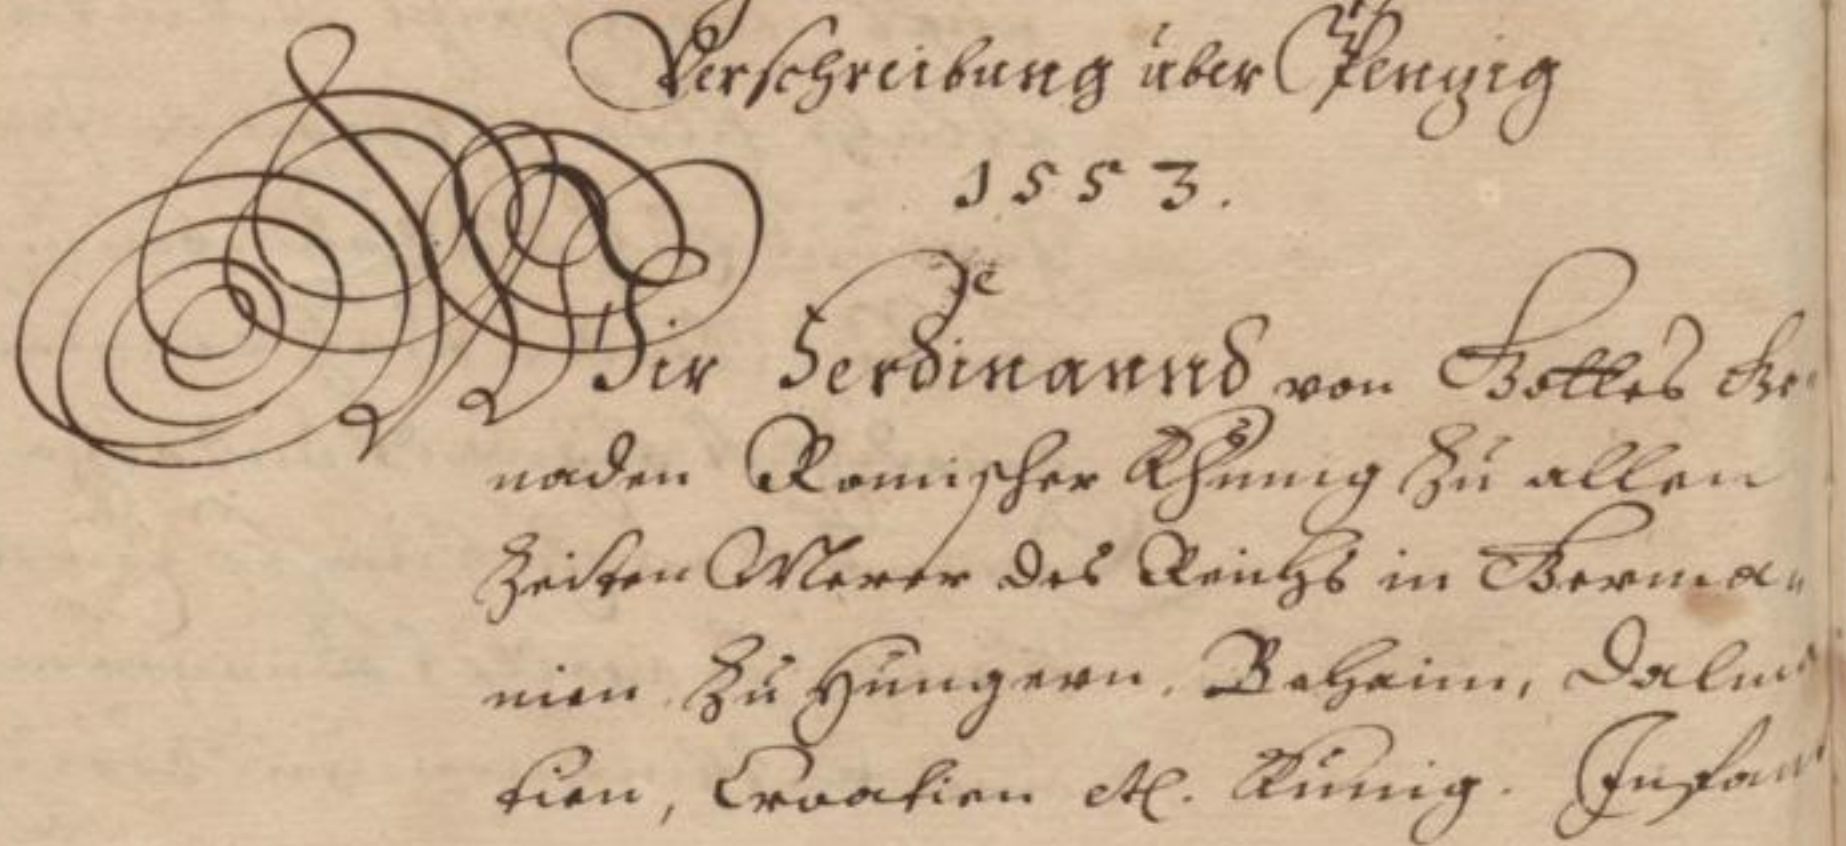 Verschreibung über Penzig
1553.
Wir Ferdinannd von Gottes Ge-
naden Romischer Khunig Zu allen
Zeitten Merer des Reichs in Germa-
nien Zu Hungern, Beheim, Dalma
tien, Croatien etc. Kunig. Infan